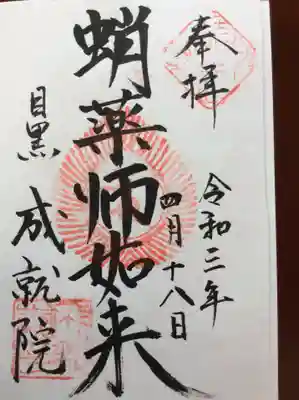 奉拝
令和三年
四月十八日
蛸薬师如来
目黒
成就院